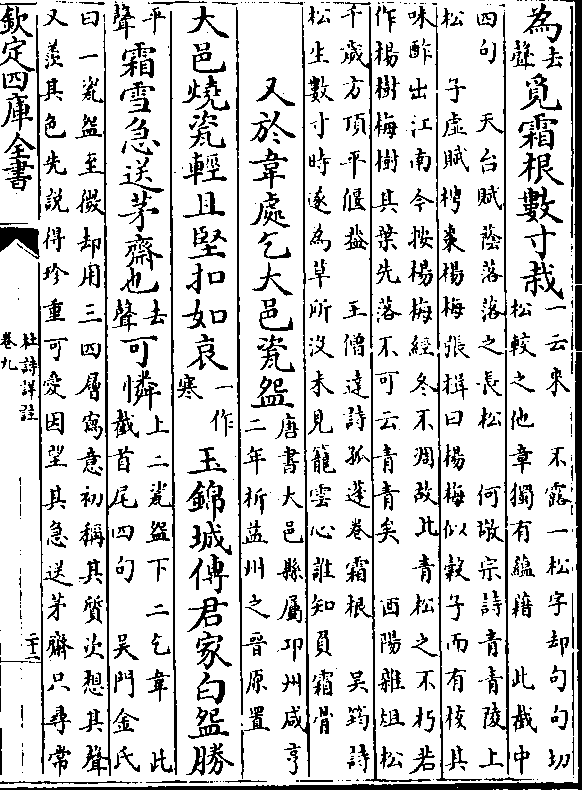 為去聲覓霜根數寸栽一云來　不露一松字却句句切
松較之他章獨有蘊藉　此截中
四句　天台賦蔭落落之長松　何敬宗詩青青陵上
松　子虛賦梬棗楊梅張揖曰楊梅似榖子而有核其
味酢出江南今按楊梅經冬不凋故比青松之不朽若
作楊樹梅樹其葉先落不可云青青矣　酉陽雜俎松
千歲方頂平偃蓋　王僧達詩孤蓬卷霜根　吳筠詩
松生數寸時遂為草所沒未見籠雲心誰知負霜骨
又於韋處乞大邑瓷盌唐書大邑縣屬邛州咸亨
二年析益州之晉原置
大邑燒瓷輕且堅扣如哀一作寒玉錦城傳君家白盌勝
平聲霜雪急送茅齋也去聲可憐上二瓷盌下二乞韋　此
截首尾四句　吳門金氏
曰一瓷盌至微却用三四層寫意初稱其質次想其聲
又羨其色先說得珍重可愛因望其急送茅齋只尋常
欽定四庫全書
杜詩詳註
卷九
二十二